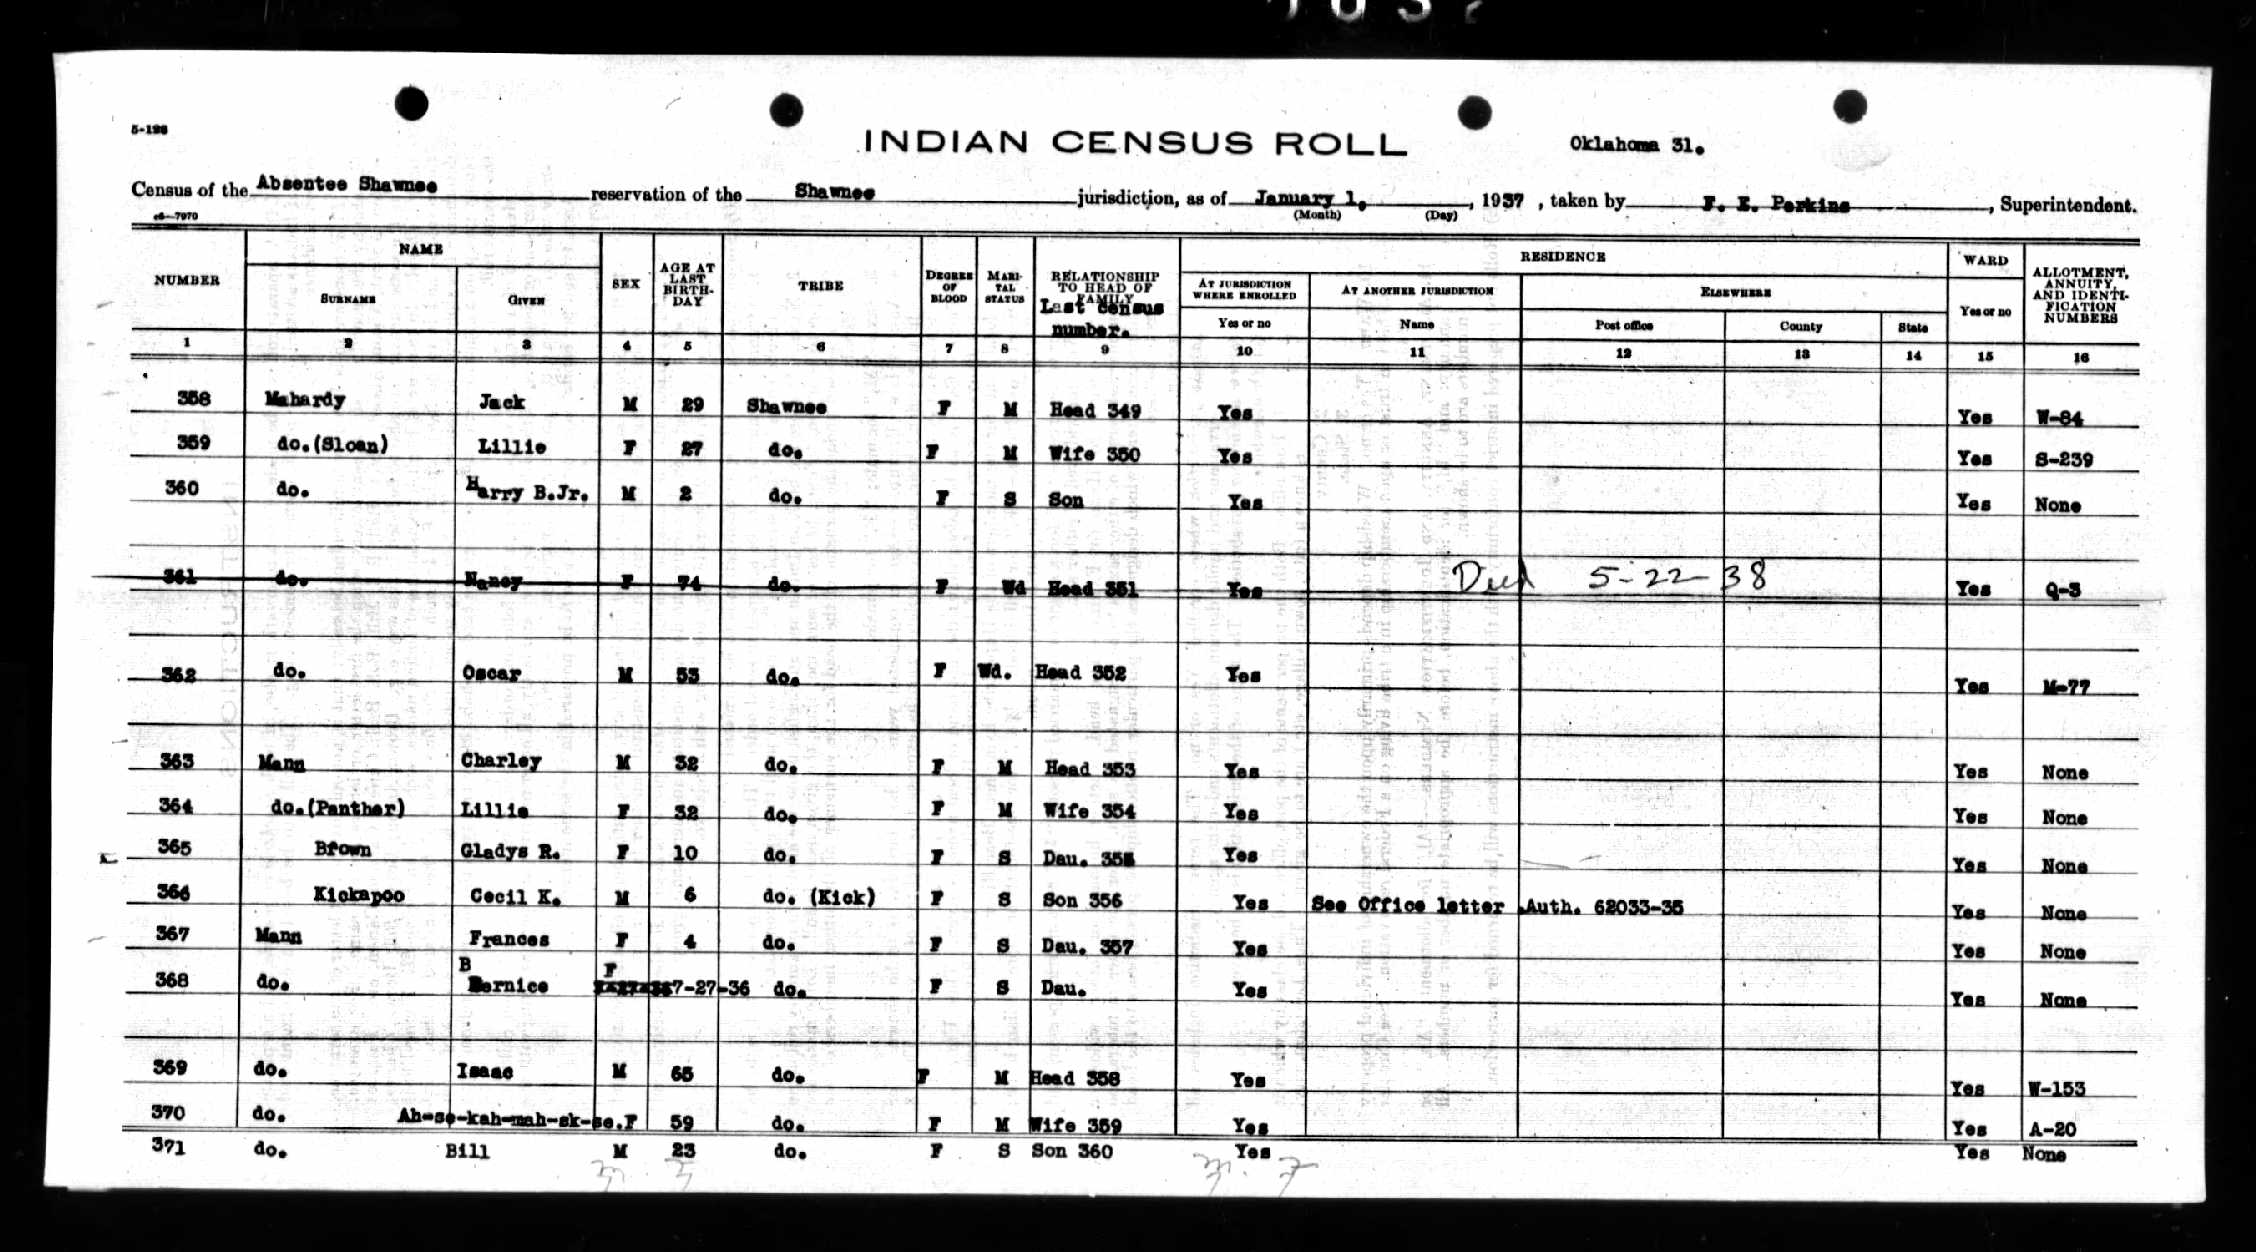 5-128
INDIAN CENSUS ROLL
Oklahoma 31.
Census of the Absentee Shawnee reservation of the Shawnee jurisdiction, as of January 1, 1937, taken by F. E. Perkins, Superintendent.
(Month) (Day)
NUMBER NAME SEX AGE AT LAST BIRTHDAY TRIBE DEGREE OF BLOOD MARITAL STATUS RELATIONSHIP TO HEAD OF FAMILY Last census number. RESIDENCE WARD ALLOTMENT, ANNUITY, AND IDENTIFICATION NUMBERS
SURNAME GIVEN AT JURISDICTION WHERE ENROLLED AT ANOTHER JURISDICTION ELSEWHERE
Yes or no Name Post office County State Yes or no
1 2 3 4 5 6 7 8 9 10 11 12 13 14 15 16
358 Mahardy Jack M 29 Shawnee F M Head 349 Yes Yes W-84
359 do.(Sloan) Lillie F 27 do. F M Wife 350 Yes Yes S-239
360 do. Harry B.Jr. M 2 do. F S Son Yes Yes None
361 do. Nancy F 74 do. F Wd Head 351 Yes Died 5-22-38 Yes Q-3
362 do. Oscar M 53 do. F Wd. Head 352 Yes Yes M-77
363 Mann Charley M 32 do. F M Head 353 Yes Yes None
364 do.(Panther) Lillie F 32 do. F M Wife 354 Yes Yes None
365 Brown Gladys R. F 10 do. F S Dau. 355 Yes Yes None
366 Kickapoo Cecil K. M 6 do. (Kick) F S Son 356 Yes See Office letter Auth. 62033-35 Yes None
367 Mann Frances F 4 do. F S Dau. 357 Yes Yes None
368 do. Bernice F 7-27-36 do. F S Dau. Yes Yes None
369 do. Isaac M 65 do. F M Head 358 Yes Yes W-153
370 do. Ah-se-kah-mah-sk-se. F 59 do. F M Wife 359 Yes Yes A-20
371 do. Bill M 23 do. F S Son 360 Yes Yes None